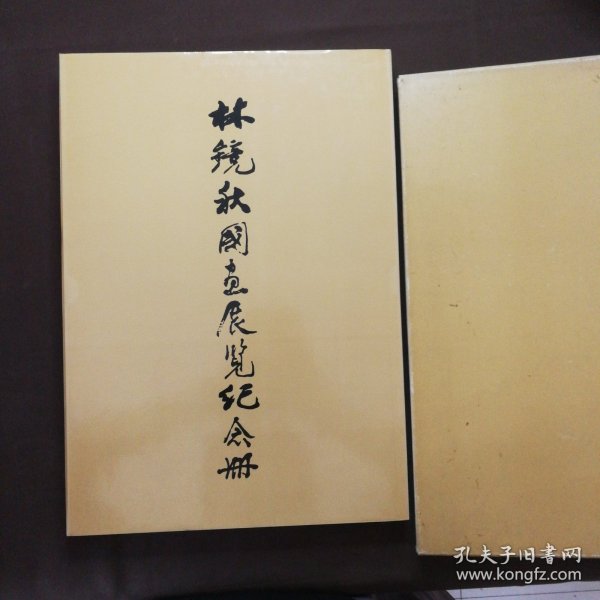 林镜秋國畫展览纪念册
孔夫子旧書网
www.kongfz.com